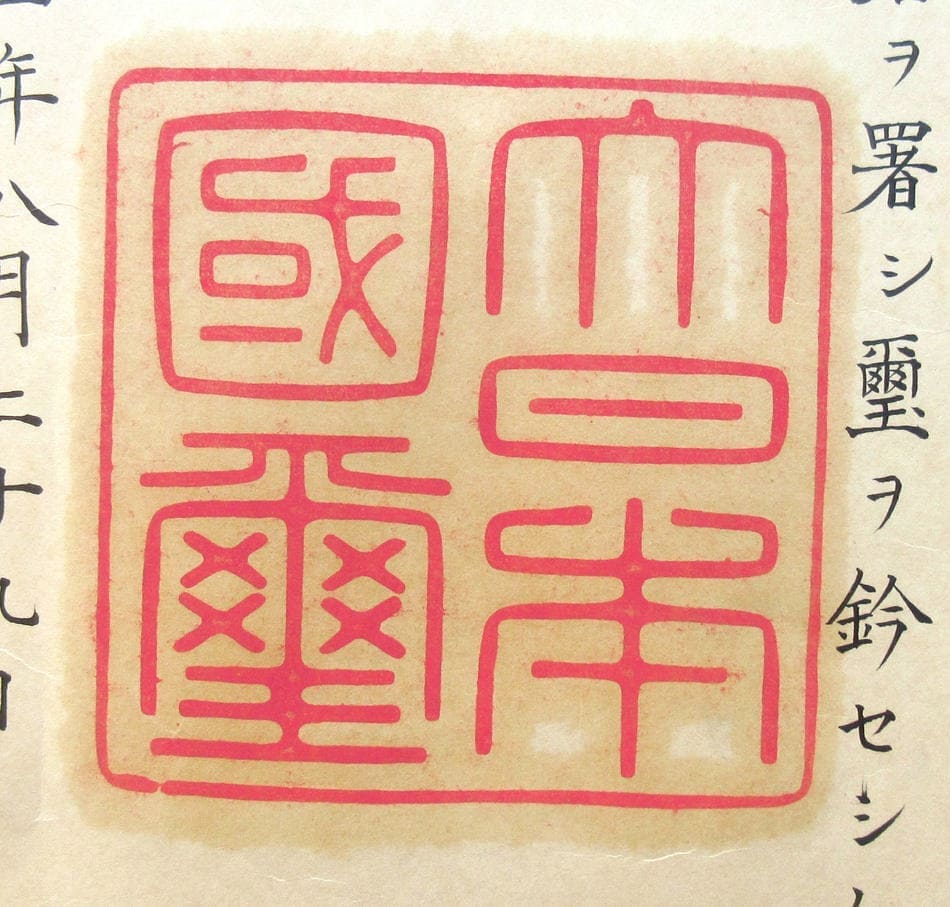 ヲ署シ璽ヲ鈐セシ
大日本
國璽
年八月二十九日